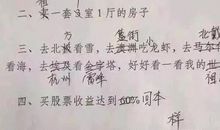 万
二、买一套3室1厅的房子
盱眙 小
三、去北极看雪,去澳洲吃龙虾,去马尔
看海,去埃及金字塔,好好看一看我的世
杭州 雷峰
四、买股票收益达到600% 回本
样